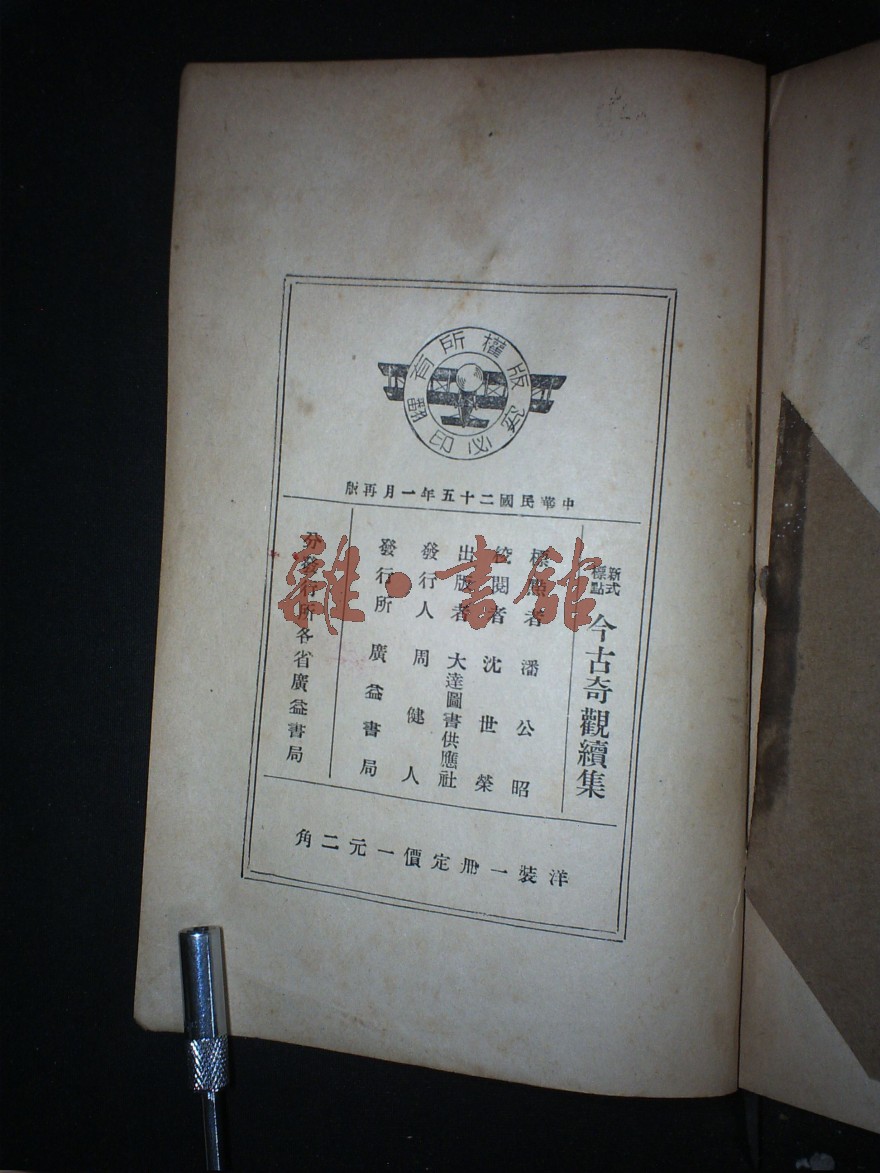 版權所有
翻印必究
中華民國二十五年一月再版
新式標點 今古奇觀續集
標點者 潘公昭
校閱者 沈世榮
出版者 大達圖書供應社
發行人 周健人
發行所 廣益書局
分發行所各省廣益書局
洋裝一冊定價一元二角
雜·書館